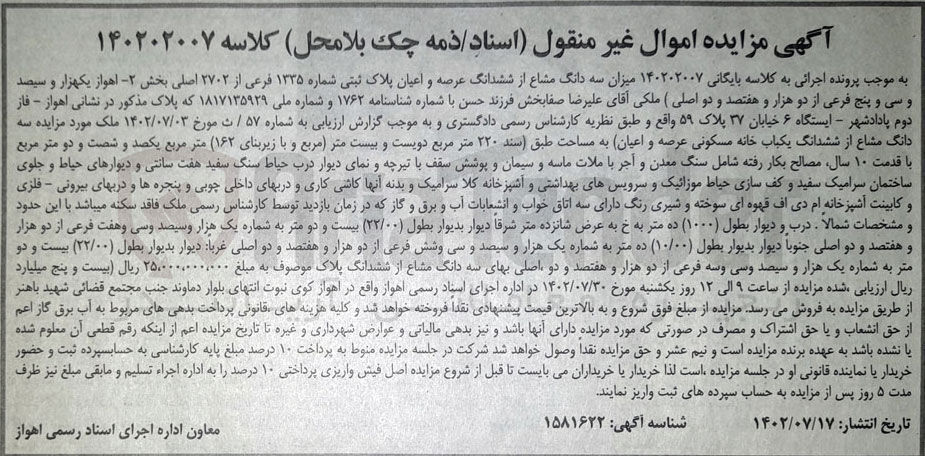 آگهی مزایده اموال غیر منقول (اسناد/ذمه چک بلامحل) کلاسه ۱۴۰۲۰۲۰۰۷
به موجب پرونده اجرائی به کلاسه بایگانی ۱۴۰۲۰۲۰۰۷ میزان سه دانگ مشاع از ششدانگ عرصه و اعیان پلاک ثبتی شماره ۱۳۳۵ فرعی از ۲۷۰۲ اصلی بخش ۲- اهواز یکهزار و سیصد
و سی و پنج فرعی از دو هزار و هفتصد و دو اصلی ) ملکی آقای علیرضا صفابخش فرزند حسن با شماره شناسنامه ۱۷۶۲ و شماره ملی ۱۸۱۷۱۳۵۹۲۹ که پلاک مذکور در نشانی اهواز - فاز
دوم پادادشهر - ایستگاه ۶ خیابان ۳۷ پلاک ۵۹ واقع و طبق نظریه کارشناس رسمی دادگستری و به موجب گزارش ارزیابی به شماره ۵۷ / ث مورخ ۱۴۰۲/۰۷/۰۳ ملک مورد مزایده سه
دانگ مشاع از ششدانگ یکباب خانه مسکونی عرصه و اعیان) به مساحت طبق (سند ۲۲۰ متر مربع دویست و بیست متر (مربع و با زیربنای ۱۶۲) متر مربع یکصد و شصت و دو متر مربع
با قدمت ۱۰ سال، مصالح بکار رفته شامل سنگ معدن و آجر با ملات ماسه و سیمان و پوشش سقف با تیرچه و نمای دیوار درب حیاط سنگ سفید هفت سانتی و دیوارهای حیاط و جلوی
ساختمان سرامیک سفید و کف سازی حیاط موزائیک و سرویس های بهداشتی و آشپزخانه کلا سرامیک و بدنه آنها کاشی کاری و دربهای داخلی چوبی و پنجره ها و دربهای بیرونی - فلزی
و کابینت آشپزخانه ام دی اف قهوه ای سوخته و شیری رنگ دارای سه اتاق خواب و انشعابات آب و برق و گاز که در زمان بازدید توسط کارشناس رسمی ملک فاقد سکنه میباشد با این حدود
و مشخصات شمالاً . درب و دیوار بطول (۱۰۰۰) ده متر به خ به عرض شانزده متر شرقاً دیوار بدیوار بطول (۲۲/۰۰) بیست و دو متر به شماره یک هزار وسیصد وسی وهفت فرعی از دو هزار و
هفتصد و دو اصلی جنوباً دیوار بدیوار بطول (۱۰/۰۰) ده متر به شماره یک هزار و سیصد و سی وشش فرعی از دو هزار و هفتصد و دو اصلی غربا: دیوار بدیوار بطول (۲۲/۰۰) بیست و دو
متر به شماره یک هزار و سیصد وسی وسه فرعی از دو هزار و هفتصد و دو ،اصلی بهای سه دانگ مشاع از ششدانگ پلاک موصوف به مبلغ ۲۵،۰۰۰،۰۰۰،۰۰۰ ریال (بیست و پنج میلیارد
ریال ارزیابی ،شده مزایده از ساعت ۹ الی ۱۲ روز یکشنبه مورخ ۱۴۰۲/۰۷/۳۰ در اداره اجرای اسناد رسمی اهواز واقع در اهواز کوی نبوت انتهای بلوار دماوند جنب مجتمع قضائی شهید باهنر
از طریق مزایده به فروش می رسد. مزایده از مبلغ فوق شروع و به بالاترین قیمت پیشنهادی نقدا فروخته خواهد شد و کلیه هزینه های ،قانونی پرداخت بدهی های مربوط به آب برق گاز اعم
از حق انشعاب و یا حق اشتراک و مصرف در صورتی که مورد مزایده دارای آنها باشد و نیز بدهی مالیاتی و عوارض شهرداری و غیره تا تاریخ مزایده اعم از اینکه رقم قطعی آن معلوم شده
یا نشده باشد به عهده برنده مزایده است و نیم عشر و حق مزایده نقداً وصول خواهد شد شرکت در جلسه مزایده منوط به پرداخت ۱۰ درصد مبلغ پایه کارشناسی به حسابسپرده ثبت و حضور
خریدار یا نماینده قانونی او در جلسه مزایده ،است لذا خریدار یا خریداران می بایست تا قبل از شروع مزایده اصل فیش واریزی پرداختی ۱۰ درصد را به اداره اجراء تسلیم و مابقی مبلغ نیز ظرف
مدت ۵ روز پس از مزایده به حساب سپرده های ثبت واریز نمایند.
تاریخ انتشار: ۱۴۰۲/۰۷/۱۷ شناسه آگهی: ۱۵۸۱۶۲۲ معاون اداره اجرای اسناد رسمی اهواز